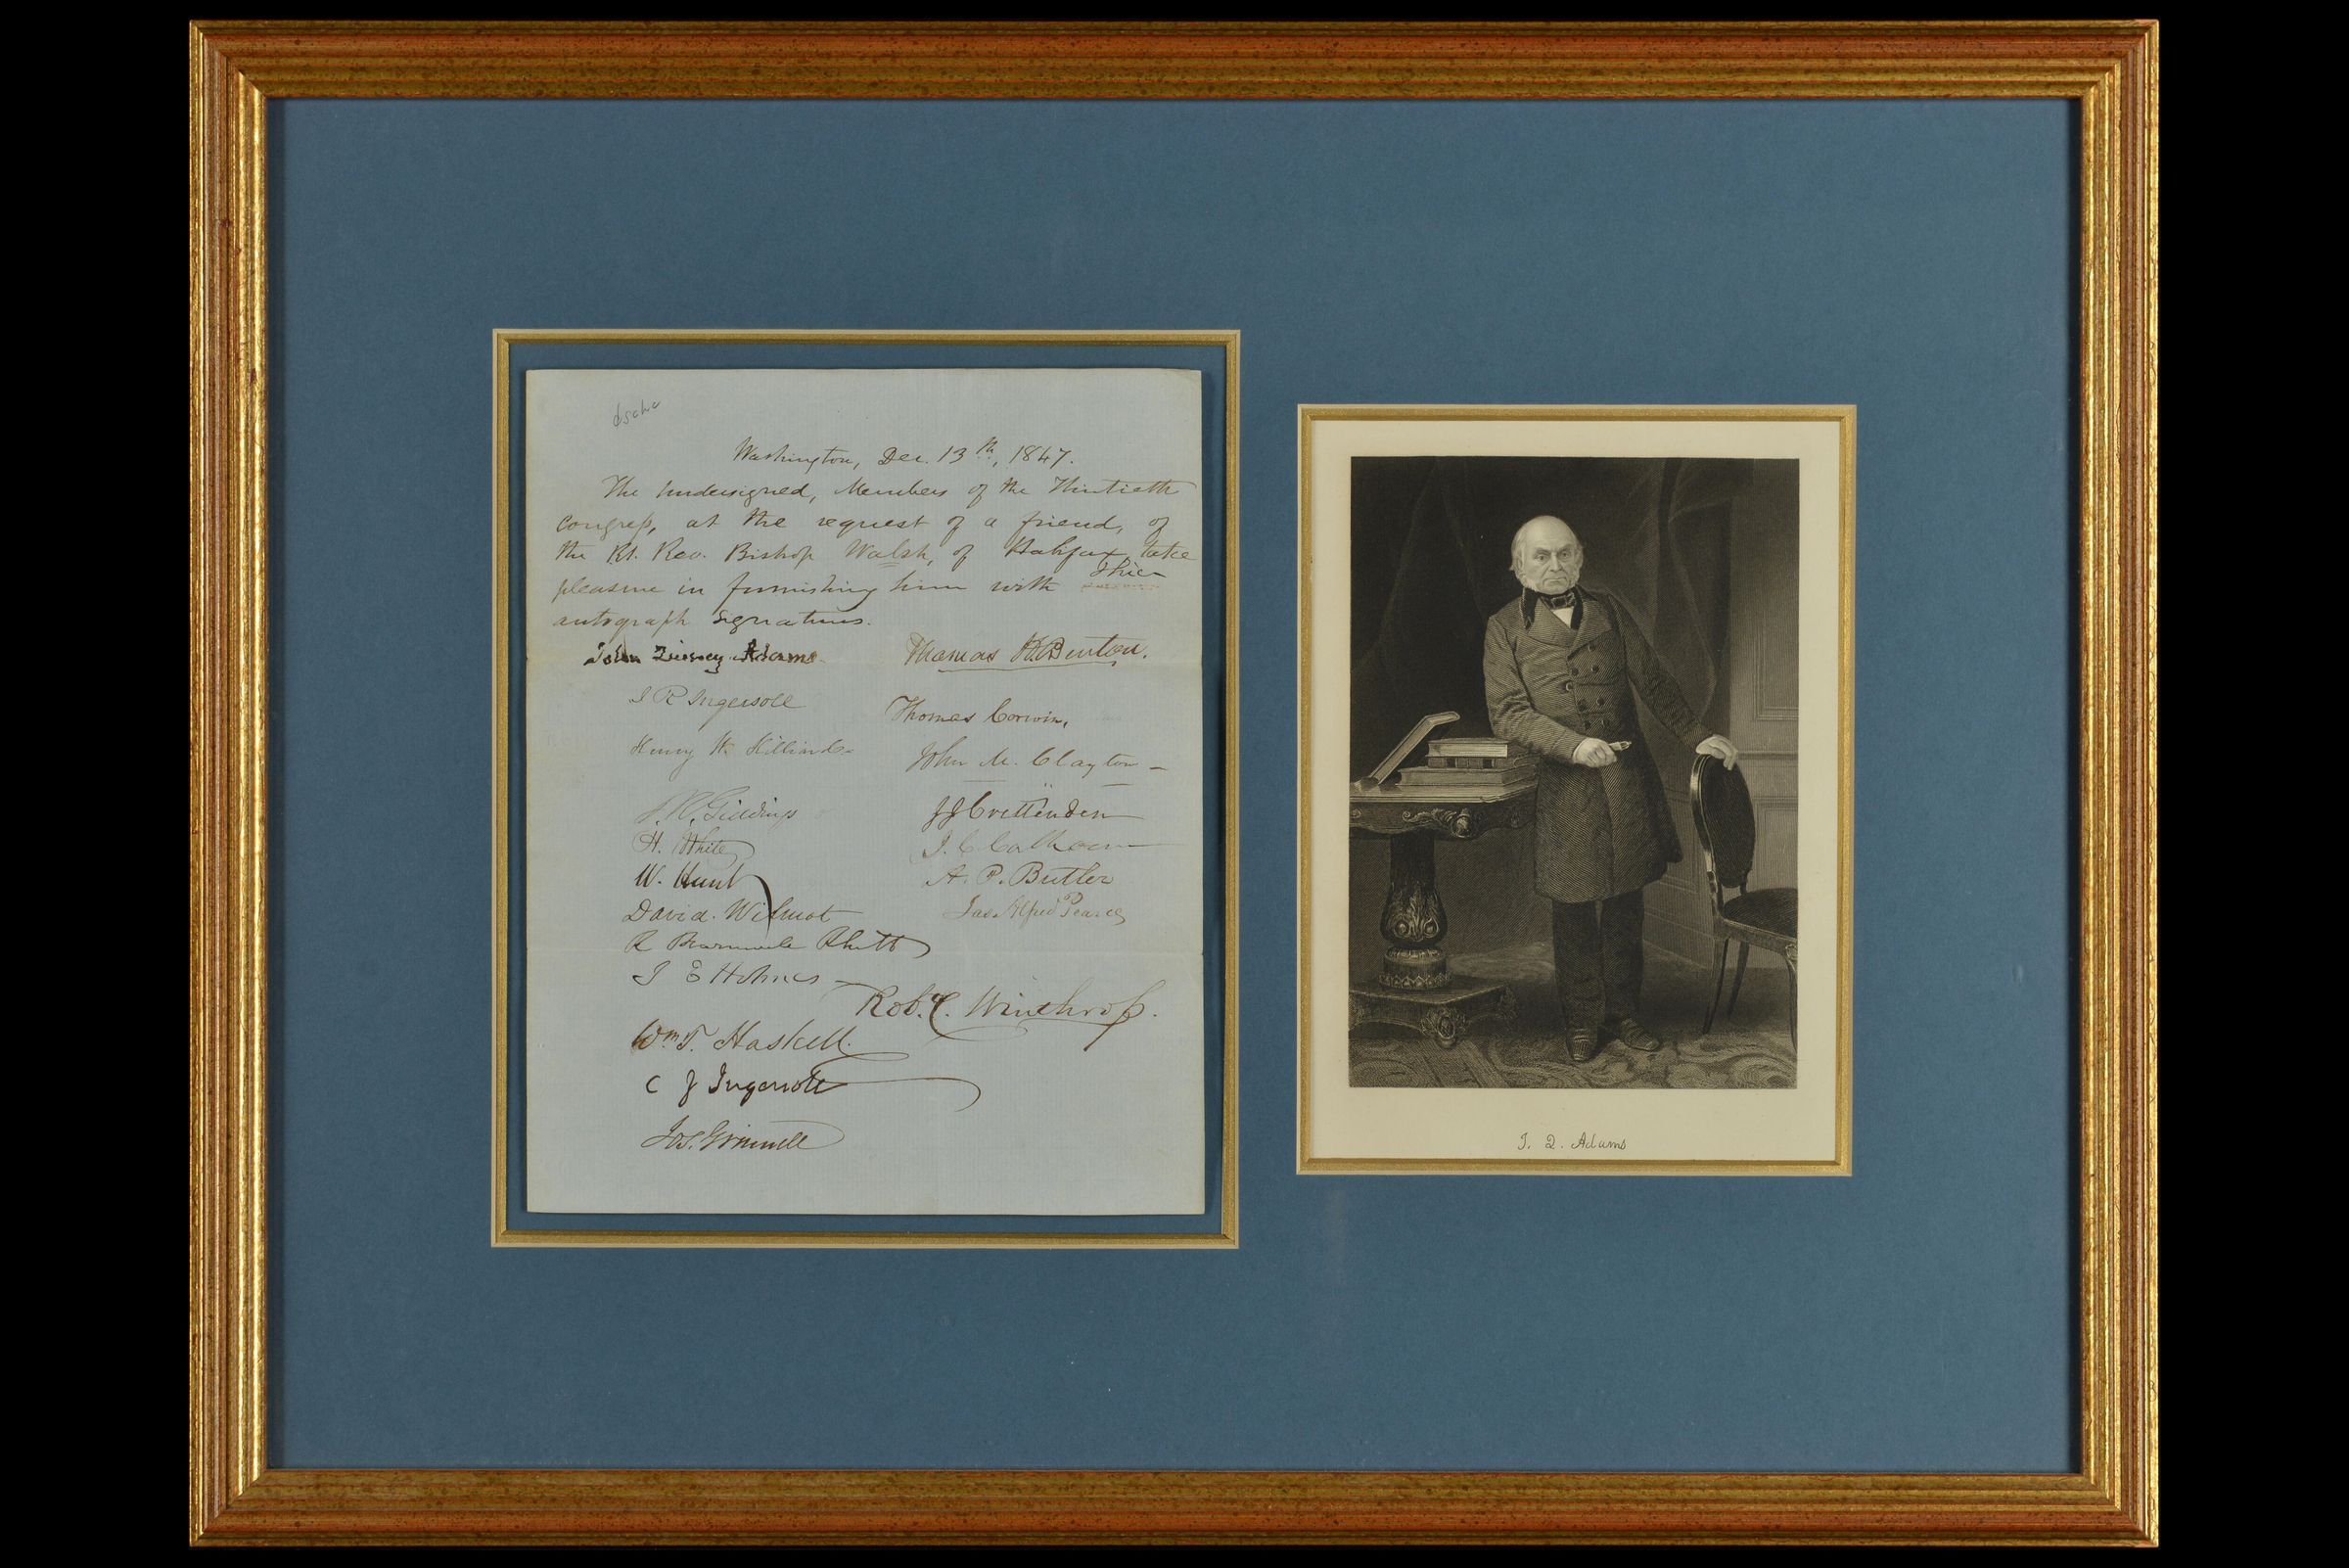 Washington, Dec. 13th, 1847.
The undersigned, Members of the Thirtieth
Congress, at the request of a friend, of
the Rt. Rev. Bishop Walsh, of Halifax, take
pleasure in furnishing him with their
autograph signatures.
John Quincy Adams
J R Ingersoll
Henry W. Hilliard
J. R. Giddings
H. White
W. Hunt
David Wilmot
R Barnwell Rhett
I E Holmes
Wm T. Haskell
C J Ingersoll
Jos. Grinnell
Thomas H. Benton.
Thomas Corwin,
John M. Clayton
J J Crittenden
J. C. Calhoun
A. P. Butler
Jas. Alfred Pearce
Robt. C. Winthrop.
J. Q. Adams